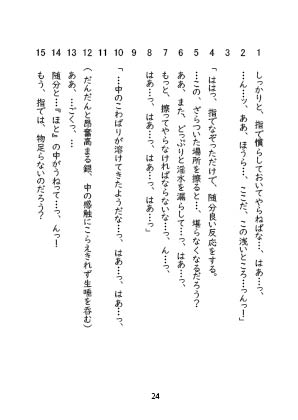 1 しっかりと、指で慣らしておいてやらねばな…、はあ…、
2 …ん…ッ、ああ、ほうら…、ここだ、この浅いところ…っんっ！」
3
4 「ははっ、指でなぞっただけで、随分良い反応をする。
5 …この、ざらついた場所を擦ると…、堪らなくなるだろう？
6 ああ、また、どっぷりと淫水を漏らして…っ、はあっ、
7 もっと、擦ってやらなければならないな…っ、ん…っ、
8 はあ…っ、はあ…っ、はあ…っ、はあ…っ」
9
10 「…中のこわばりが溶けてきたようだな…っ、はあ…っ、
11
12 （だんだんと昂奮高まる銀、中の感触にこらえきれず生唾を呑む）
13 ああ、…ごくっ、…
14 随分と…『ほと』の中がうねって…っ、んっ！
15 もう、指では、物足らないのだろう？
24